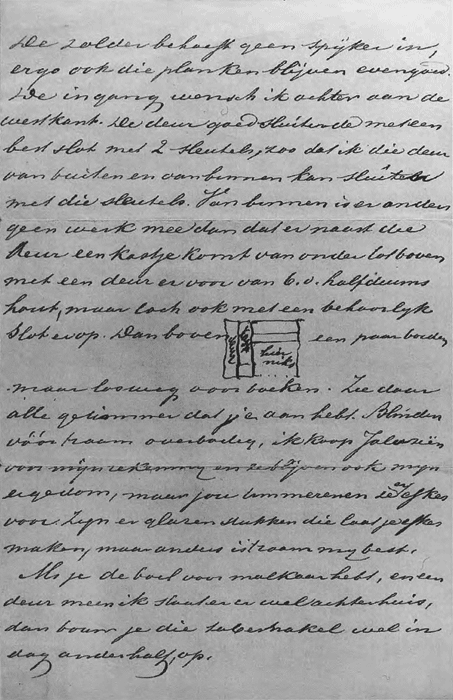 De zolder behoeft geen spijker in,
ergo ook die planken blijven evengoed.
De ingang wensch ik achter aan de
westkant. De deur goed sluitende met een
best slot met 2 sleutels, zoo dat ik die deur
van buiten en van binnen kan sluiten
met die sleutels. Van binnen is er anders
geen werk mee dan dat er naast die
deur een kastje komt van onder tot boven
met een deur er voor van b.v. halfduims
hout, maar toch ook met een behoorlyk
slot er op. Dan boven een paar borden
deur
hier
niks
maar losweg voor boeken. Zie daar
alle getimmer dat je aan hebt. Blinden
vóór t raam overbodig, ik koop Jalozien
voor mijn rekening en ze blijven ook mijn
eigedom, maar jou timmeren en ze efkes
voor. Zyn er glazen stukken die laat je efkes
maken, maar anders is t raam my best.
Als je de boel voor malkaar hebt, en een
deur mein ik staat er er wel achterhuis,
dan bouw je die tabernakel wel in
dag anderhalf, op.